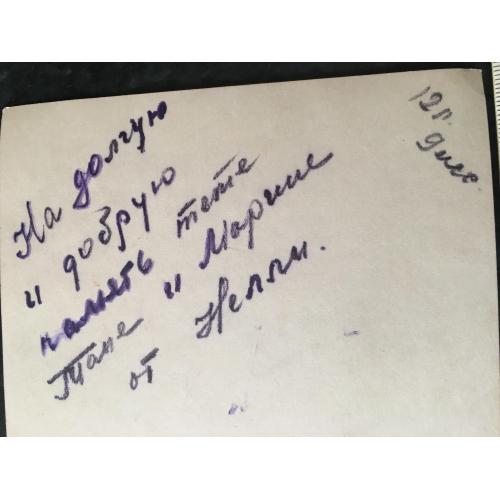 На долгую
и добрую
память тете
Тане и Марине
от Нелли.
12 л.
9 мес.